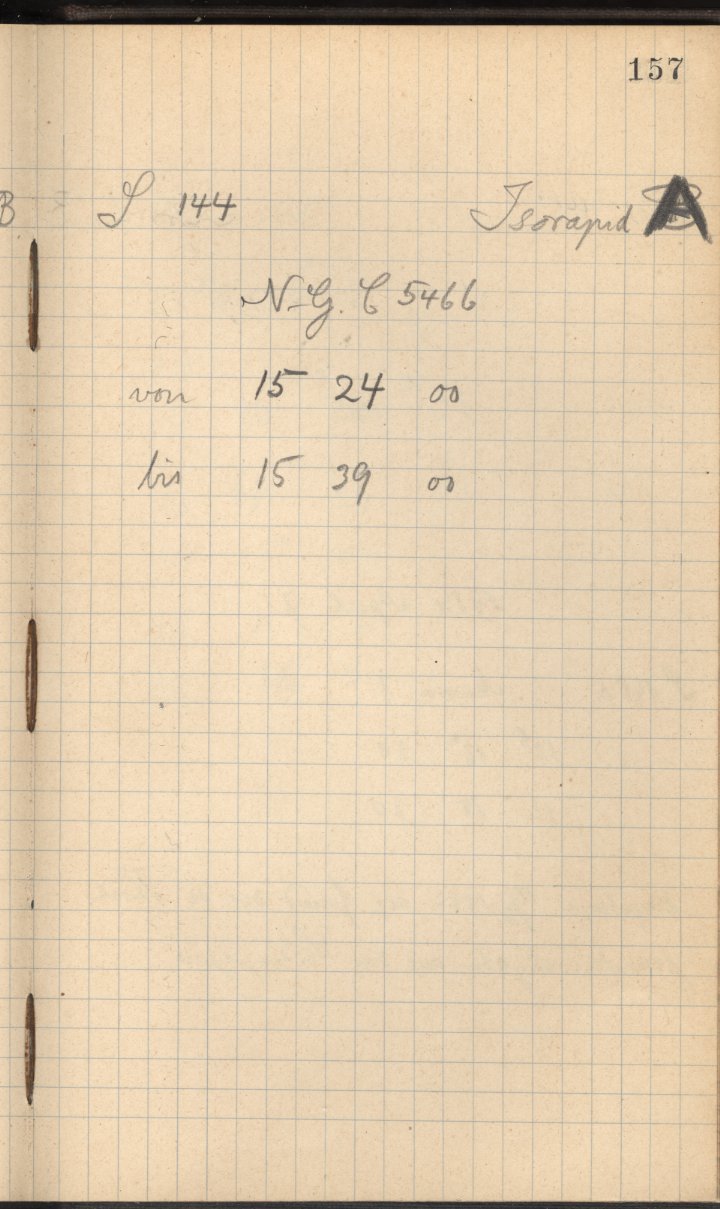 157
B S 144 Isorapid A
N.G.C 5466
von 15 24 00
bis 15 39 00